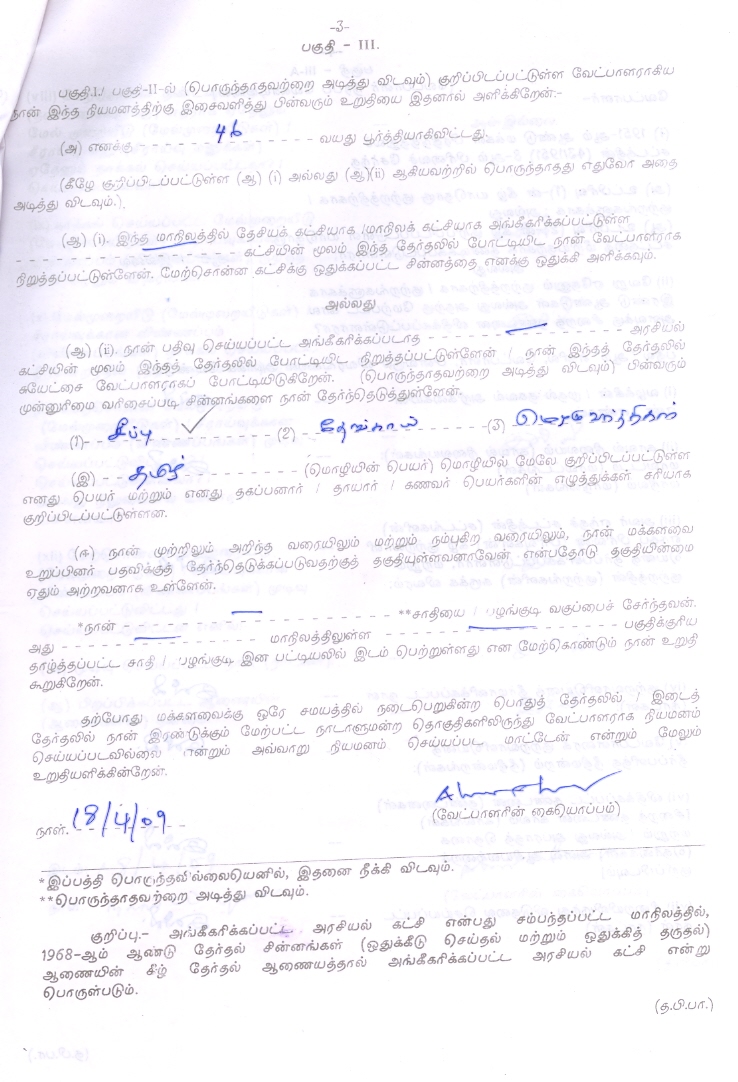 -3-
பகுதி - III.
பகுதி.I./ பகுதி-II-ல் (பொருந்தாதவற்றை அடித்து விடவும்) குறிப்பிடப்பட்டுள்ள வேட்பாளராகிய
நான் இந்த நியமனத்திற்கு இசைவளித்து பின்வரும் உறுதியை இதனால் அளிக்கிறேன்:-
(அ) எனக்கு - - - 46 - - - - - - - வயது பூர்த்தியாகிவிட்டது.
(கீழே குறிப்பிடப்பட்டுள்ள (ஆ) (i) அல்லது (ஆ)(ii) ஆகியவற்றில் பொருந்தாதது எதுவோ அதை
அடித்து விடவும்.).
(ஆ) (i). இந்த மாநிலத்தில் தேசியக் கட்சியாக /மாநிலக் கட்சியாக அங்கீகரிக்கப்பட்டுள்ள
- - - - - - - - - - - - - - - கட்சியின் மூலம் இந்த தேர்தலில் போட்டியிட நான் வேட்பாளராக
நிறுத்தப்பட்டுள்ளேன். மேற்சொன்ன கட்சிக்கு ஒதுக்கப்பட்ட சின்னத்தை எனக்கு ஒதுக்கி அளிக்கவும்.
அல்லது
(ஆ) (ii). நான் பதிவு செய்யப்பட்ட அங்கீகரிக்கப்படாத - - - - - - - - - - - - - அரசியல்
கட்சியின் மூலம் இந்தத் தேர்தலில் போட்டியிட நிறுத்தப்பட்டுள்ளேன் / நான் இந்தத் தேர்தலில்
சுயேட்சை வேட்பாளராகப் போட்டியிடுகிறேன். (பொருந்தாதவற்றை அடித்து விடவும்) பின்வரும்
முன்னுரிமை வரிசைப்படி சின்னங்களை நான் தேர்ந்தெடுத்துள்ளேன்.
(1)- - சீப்பு - - - - - - - (2) - - தேங்காய் - - - - (3) மெழுகுவர்த்திகள்
(இ) - - தமிழ் - - - - - - - - - (மொழியின் பெயர்) மொழியில் மேலே குறிப்பிடப்பட்டுள்ள
எனது பெயர் மற்றும் எனது தகப்பனார் / தாயார் / கணவர் பெயர்களின் எழுத்துக்கள் சரியாக
குறிப்பிடப்பட்டுள்ளன.
(ஈ) நான் முற்றிலும் அறிந்த வரையிலும் மற்றும் நம்புகிற வரையிலும், நான் மக்களவை
உறுப்பினர் பதவிக்குத் தேர்ந்தெடுக்கப்படுவதற்குத் தகுதியுள்ளவனாவேன் என்பதோடு தகுதியின்மை
ஏதும் அற்றவனாக உள்ளேன்.
*நான் - - - - - - - - - - - - - - - - - - - **சாதியை / பழங்குடி வகுப்பைச் சேர்ந்தவன்.
அது - - - - - - - - - - - மாநிலத்திலுள்ள - - - - - - - - - - - - - - - - பகுதிக்குரிய
தாழ்த்தப்பட்ட சாதி / பழங்குடி இன பட்டியலில் இடம் பெற்றுள்ளது என மேற்கொண்டும் நான் உறுதி
கூறுகிறேன்.
தற்போது மக்களவைக்கு ஒரே சமயத்தில் நடைபெறுகின்ற பொதுத் தேர்தலில் / இடைத்
தேர்தலில் நான் இரண்டுக்கும் மேற்பட்ட நாடாளுமன்ற தொகுதிகளிலிருந்து வேட்பாளராக நியமனம்
செய்யப்படவில்லை என்றும் அவ்வாறு நியமனம் செய்யப்பட மாட்டேன் என்றும் மேலும்
உறுதியளிக்கின்றேன்.
(வேட்பாளரின் கையொப்பம்)
நாள். 18/4/09
*இப்பத்தி பொருந்தவில்லையெனில், இதனை நீக்கி விடவும்.
**பொருந்தாதவற்றை அடித்து விடவும்.
குறிப்பு.- அங்கீகரிக்கப்பட்ட அரசியல் கட்சி என்பது சம்பந்தப்பட்ட மாநிலத்தில்,
1968-ஆம் ஆண்டு தேர்தல் சின்னங்கள் (ஒதுக்கீடு செய்தல் மற்றும் ஒதுக்கித் தருதல்)
ஆணையின் கீழ் தேர்தல் ஆணையத்தால் அங்கீகரிக்கப்பட்ட அரசியல் கட்சி என்று
பொருள்படும்.
(த.பி.பா.)